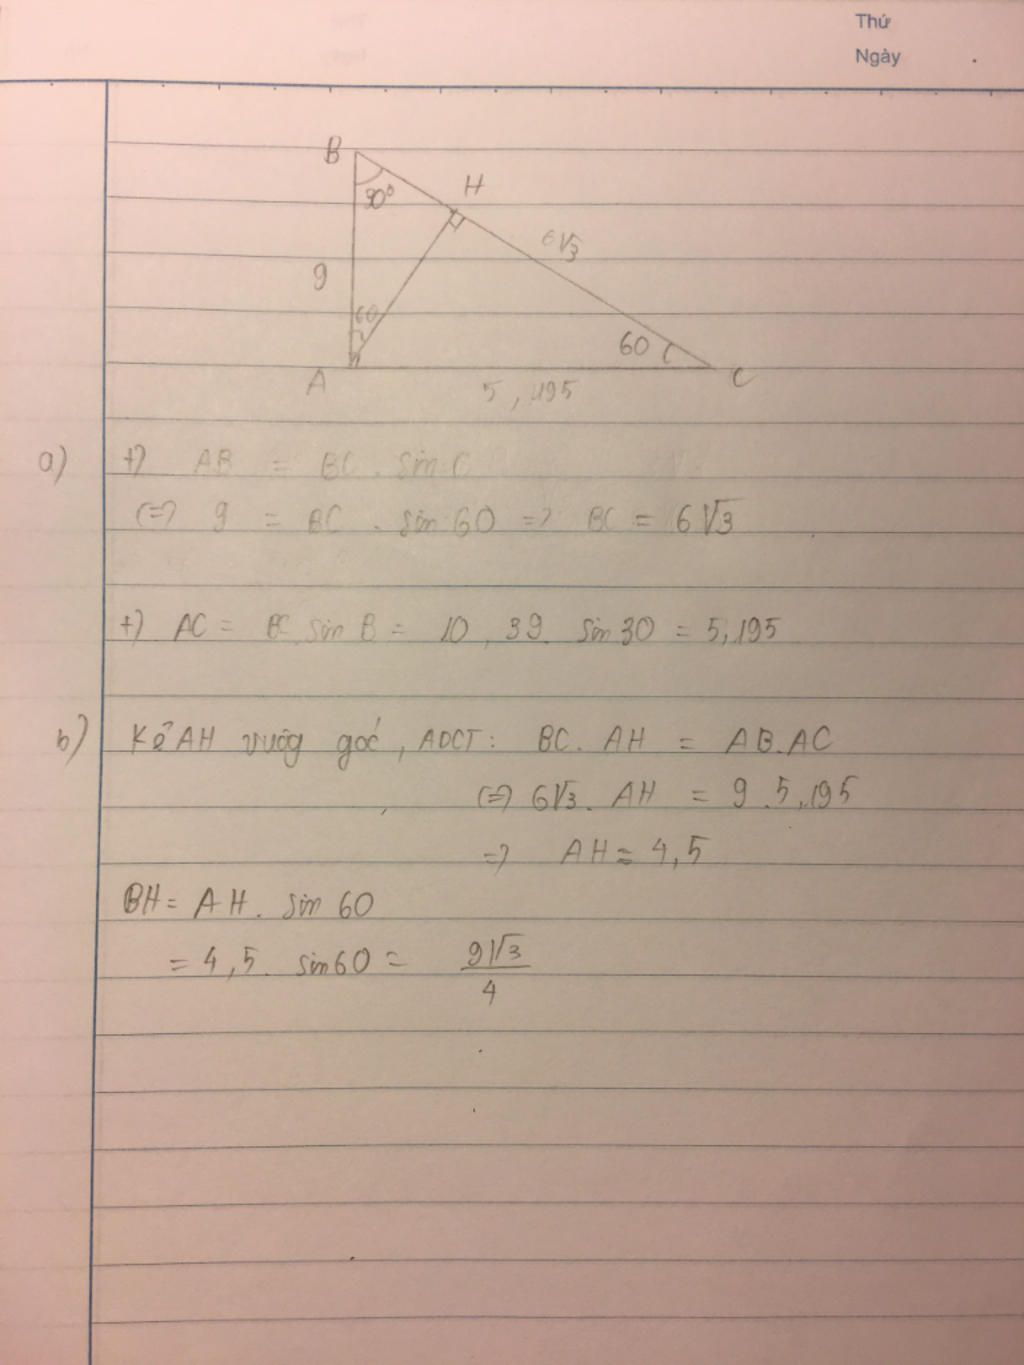 Thứ
Ngày
B
30°
H
6√3
9
60
60
A
C
5,195
a) +) AB = BC . sin C
(=) 9 = BC . sin 60 => BC = 6√3
+) AC = BC sin B = 10,39. sin 30 = 5,195
b) Kẻ AH vuôg góc, ADCT: BC. AH = AB.AC
(=) 6√3. AH = 9.5,195
=) AH = 4,5
BH = AH. sin 60
= 4,5. sin60 = 9√3/4